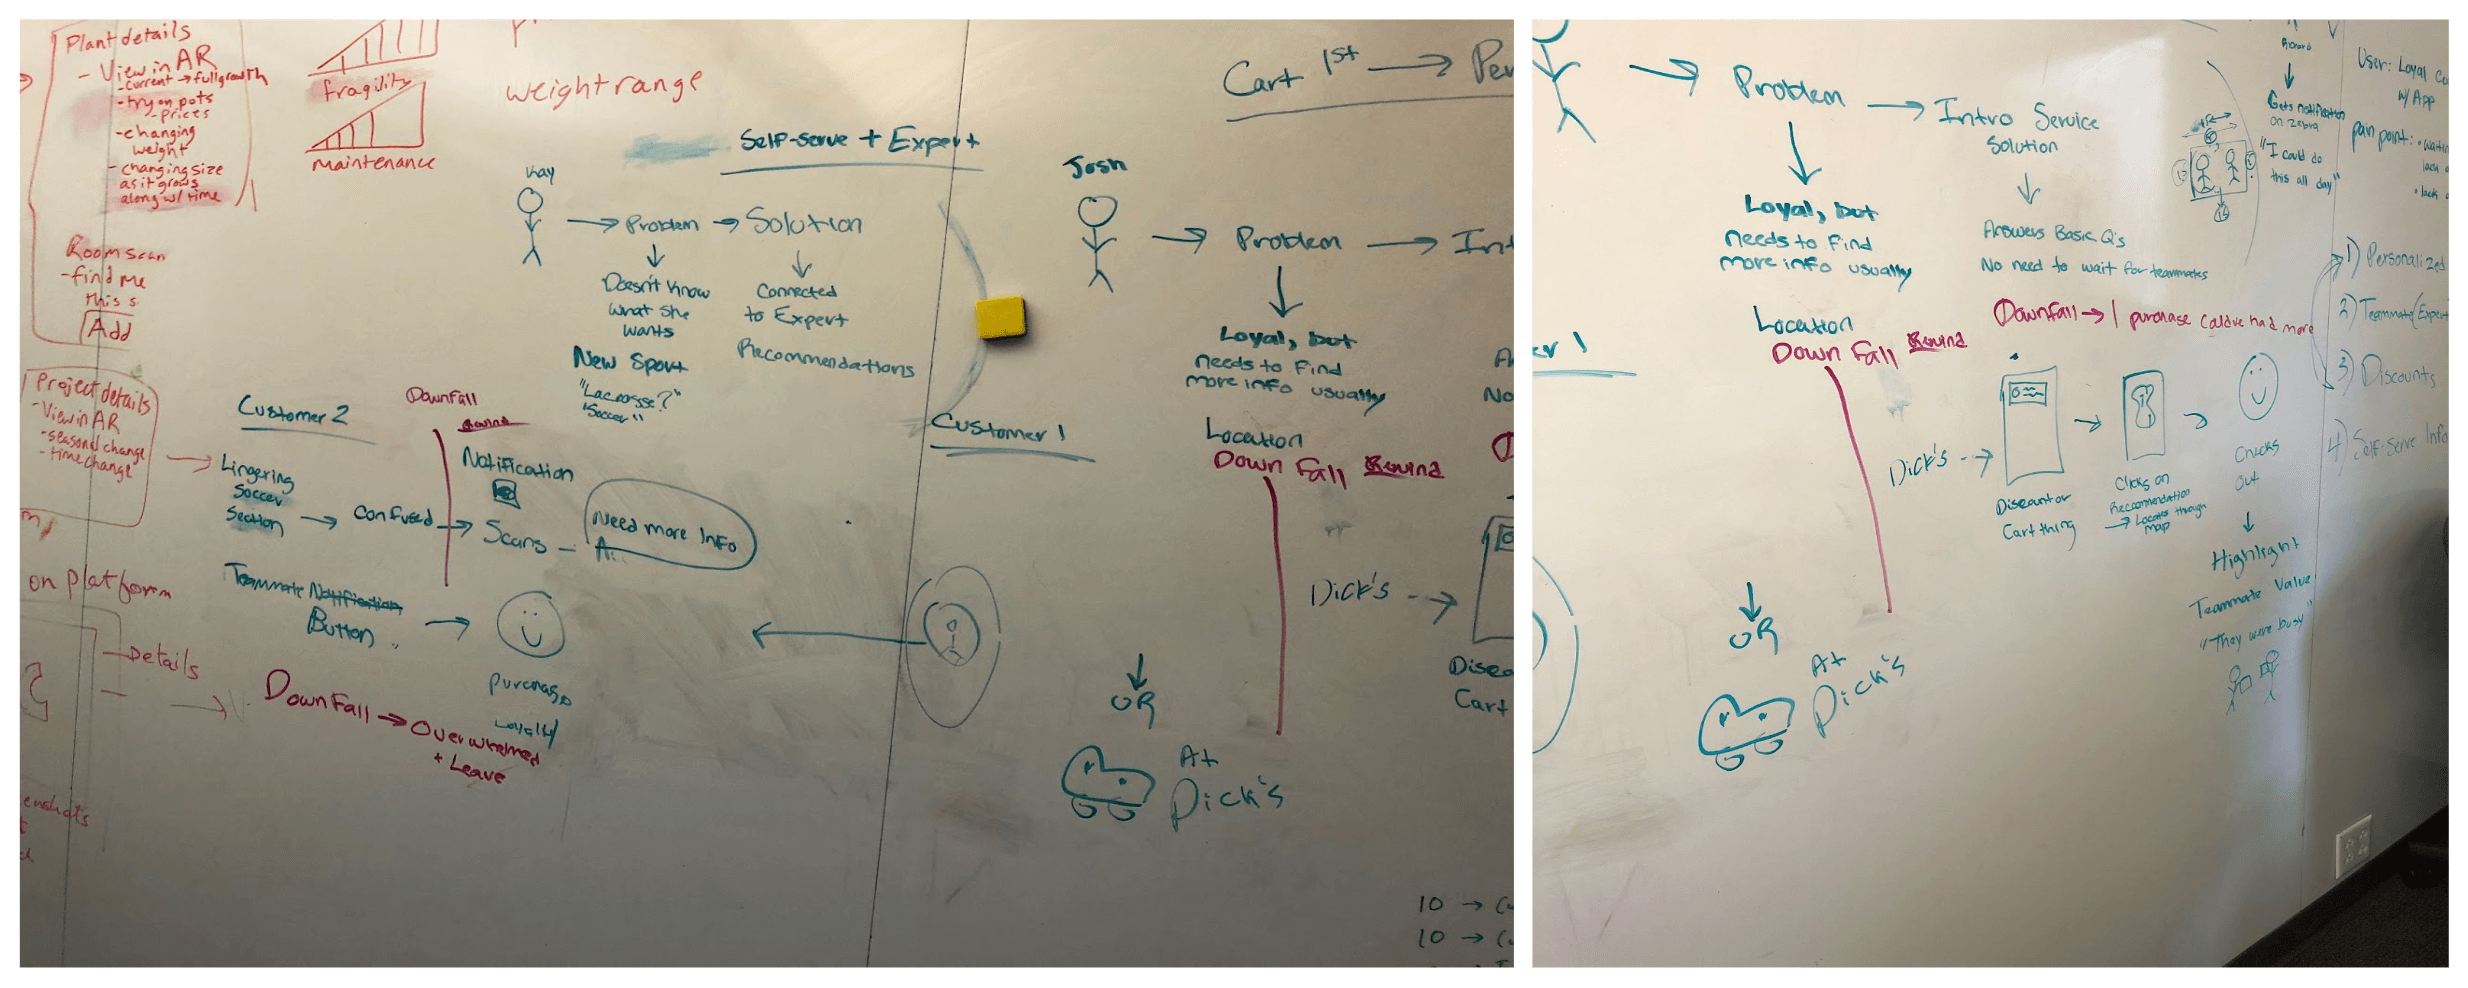 Plant details
- View in AR
- current → full growth
- try on pots
- prices
- changing
weight
- changing size
as it grows
along w/ time
Room scan
- find me
this s
Add
fragility
maintenance
weight range
Self-serve + Expert
Kay
→ Problem → Solution
Doesn't know
what she
wants
New Sport
"Lacrosse?"
"Soccer"
Connected
to Expert
Recommendations
Project details
- View in AR
- seasonal change
- time change
Customer 2
DownFall
Rewind
Lingering
Soccer
Section
→ confused →
Notification
Scans -
Need more Info
Teammate Notification
Button
purchase
Loyalty
DownFall → Overwhelmed
+ Leave
on platform
Details
enshots
Cart 1st → Per
Josh
→ Problem → Int
Loyal, but
needs to find
more info usually
Customer 1
Location
Down Fall Rewind
No
Dick's -->
Disco
Cart
OR
At
Dick's
10 → C
10 → C
→ Problem → Intro Service
Solution
Loyal, but
needs to find
more info usually
Answers Basic Q's
No need to wait for teammates
Location
Down Fall Rewind
DownFall → 1 purchase could've had more
er 1
Dick's -->
Discount or
Cart thing
Clicks on
Recommendation
→ Locates through
map
Checks
out
Highlight
Teammate Value
"They were busy"
OR
At
Dick's
Gets notification
on zebra
"I could do
this all day"
User: Loyal Cu
w/ App
pain point: • waitin
lack o
• lack o
1) Personalized
2) Teammate (Expert
3) Discounts
4) Self-Serve Info